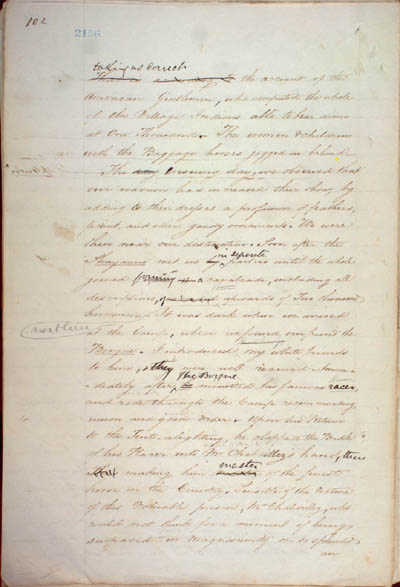 102
2156
taking as correct
the account of the
Arovacan Gentleman, who computed the whole
of the Village Indians able to bear arms
at One Thousand. The women & children
with the Baggage horses jogged on behind
The evening day, we observed that
our warriors had increased their show, by
adding to their dresses a profusion of feathers,
paint, and other gaudy ornaments. We were
then near our destination. Soon after the
Shayannes met us in separate parties until the whole
joined forming a cavalcade, including all
descriptions, upwards of Two thousand
horsemen. It was dark when we arrived
at the Camp, where we found our friend the
Borgne. I introduced my white friends
to him, & they were well received. Imme-
diately after, The Borgne mounted his famous racer,
and rode through the Camp recommending
union and good order. Upon his return
to the Tent, alighting, he slapped the Bridle
of his Racer into Mr Chaboillez's hand, thus
making him master of the finest
horse in the Country. Sensible of the nature
of this Valuable present, Mr Chaboillez, who
could not think for a moment of being
surpassed in magnanimity on so splendid
an